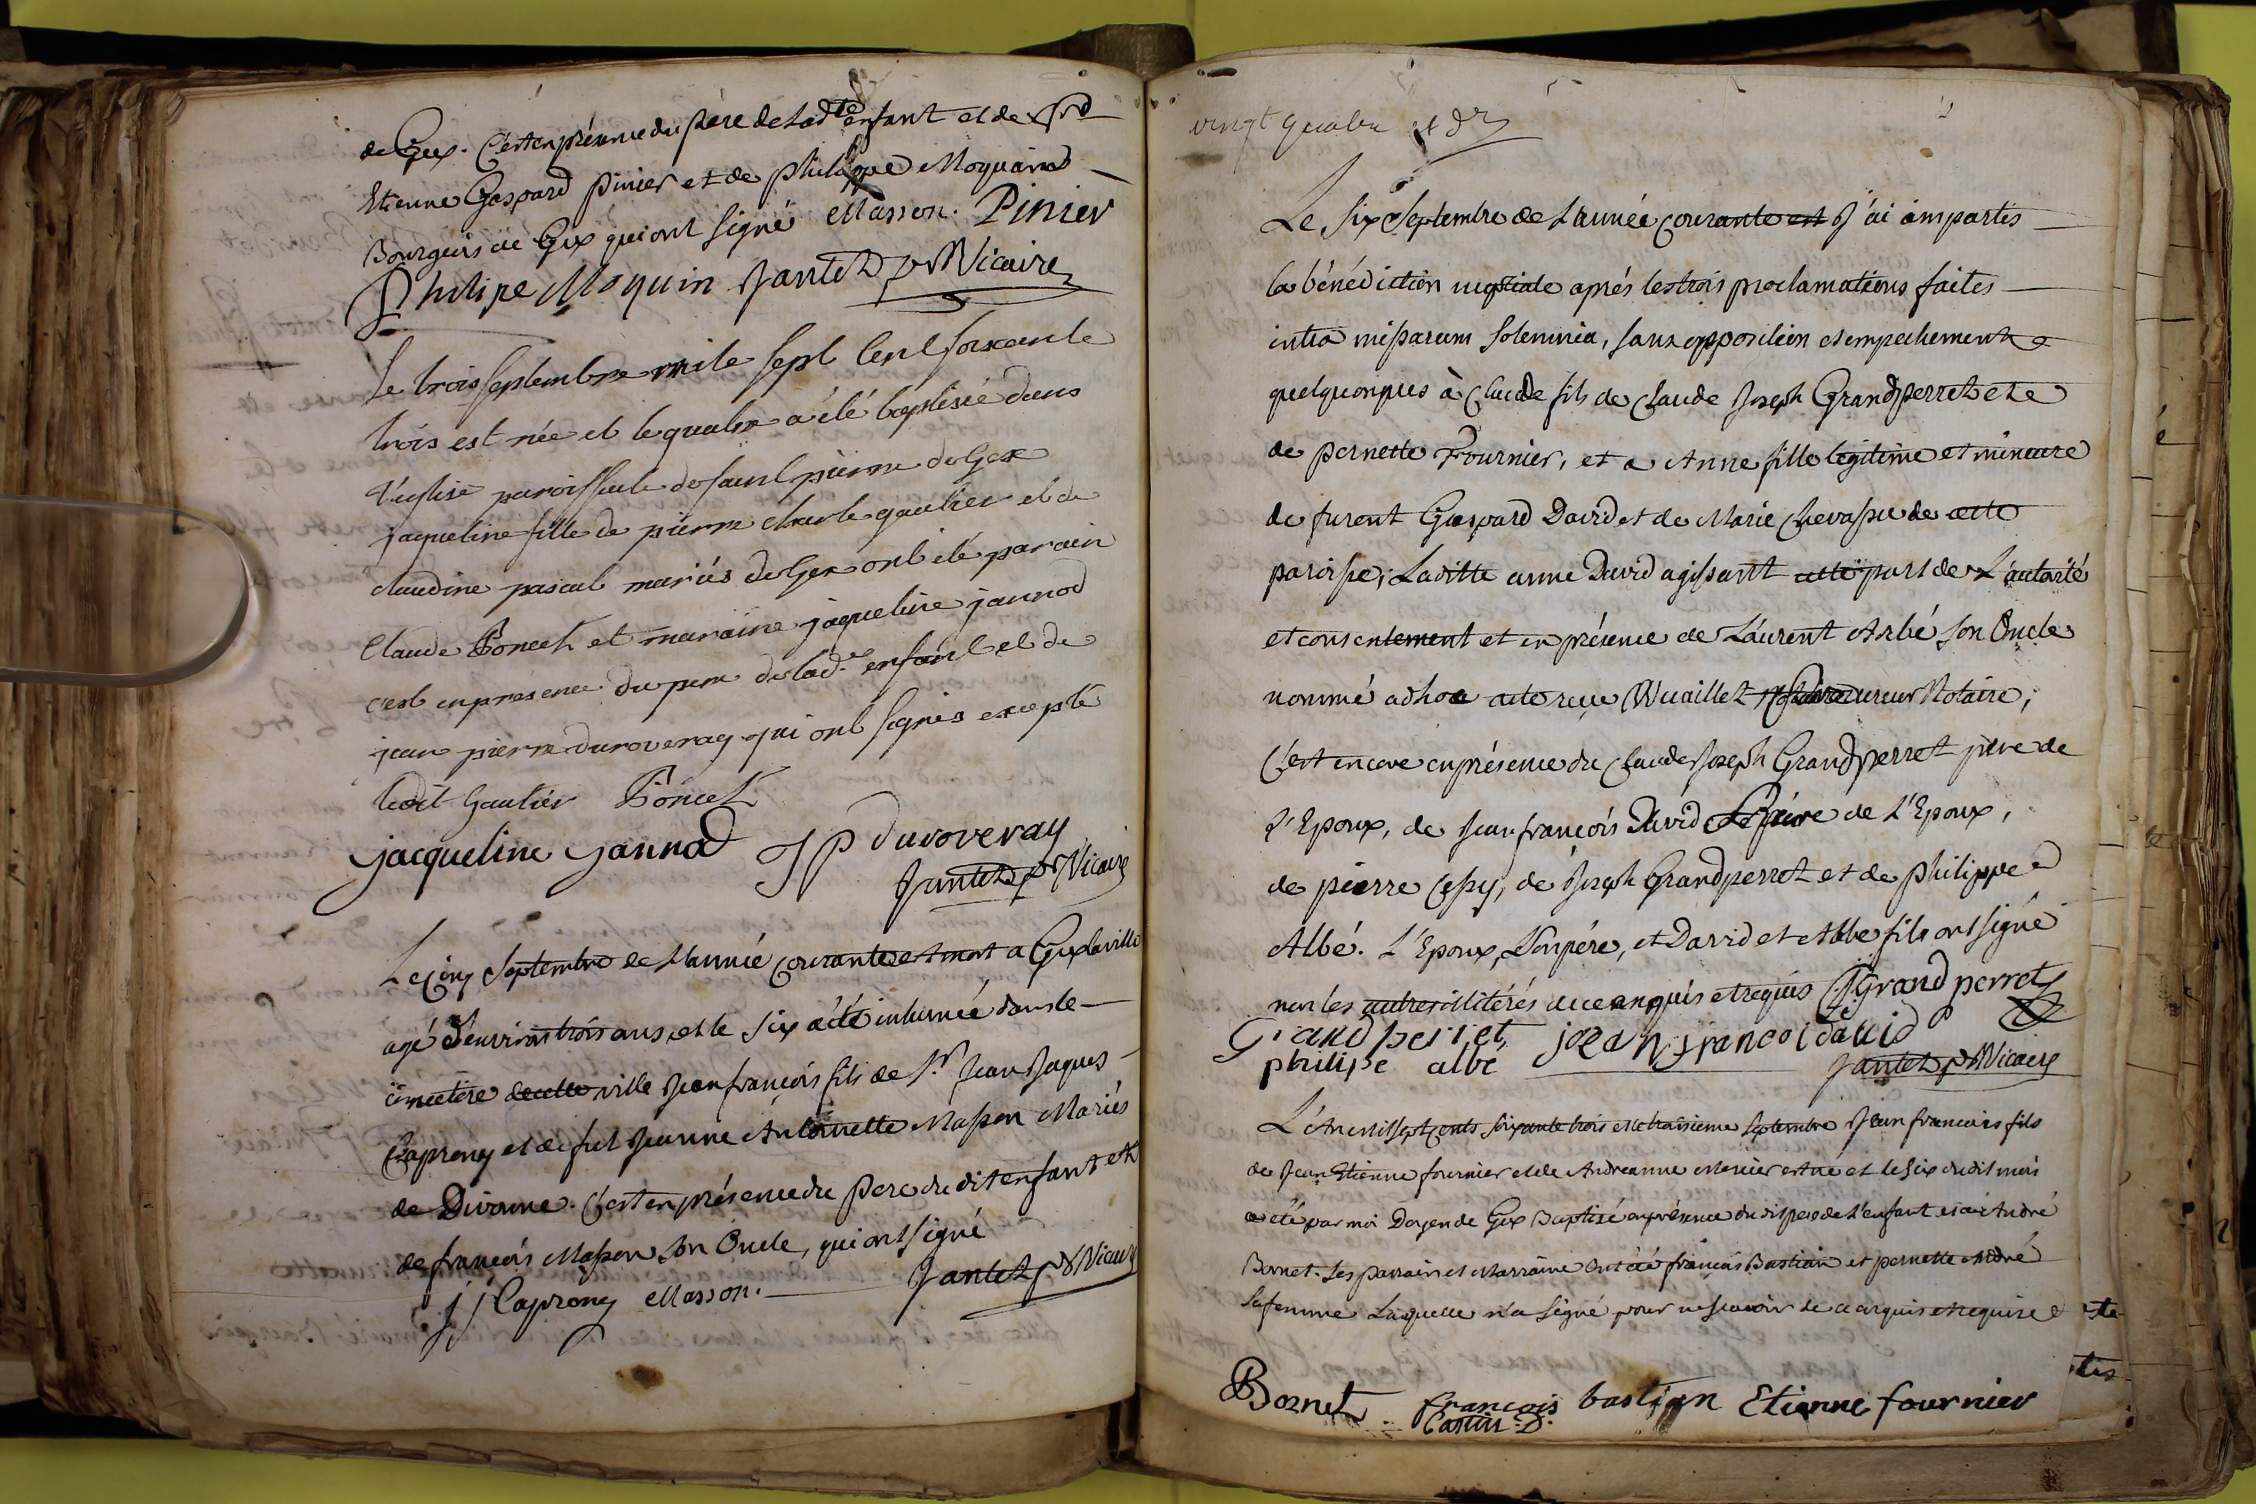 de Gex. C'est en présence du pére de Ladte enfant et de Srd
Etienne Gaspard Pinier et de philippe Moquaind
Bourgeois de Gex qui ont signé Masson. Pinier
Philipe Moquin Jantet pr Vicaire
Le trois septembre mile sept Cent soixante
trois est née et le quatre a été baptisée dans
l'eglise paroissiale de saint pierre de Gex
jaqueline fille de pierre charle gautier et de
claudine pascal mariés de Gex ont été parain
Claude Poncet et maraine jaqueline jannod
c'est en presence du pere de lade enfant et de
jean pierre duroveray qui ont signés excepté
ledit Gautier Poncet
jacqueline jannod JP duroveray
Jantet pr Vicaire
Le Cinq Septembre de L'année Courante est mort a Gex la ville
agé d'environ trois ans, et le six a été inhumé dans le
cimetiere de cette ville Jean françois fils de Sr Jean Jaques
Caprony et de fut Jeanne Antoinette Masson Mariés
de Divonne. C'est en présence du pere du dit enfant et
de françois Masson son Oncle, qui ont signé
jj Caprony Masson. Jantet pr Vicaire
vingt quatre et dr
Le six Septembre de L'année Courante est J'ai imparties
la bénédiction nuptiale aprés les trois proclamations faites
intra missarum Solemnia, sans opposition et empechements
quelquonques à Claude fils de Claude Joseph Grandperret et
de pernette Fournier, et a Anne fille legitime et mineure
de furent Gaspard David et de Marie Chevassu de cette
paroisse; Laditte anne David agissant de L'autorité
et consentement et en présence de Laurent Arbé son Oncle
nommé ad hoc acte reçu Vuaillet Notaire;
C'est encore en présence du Claude Joseph Grandperret pére de
L'Epoux, de jean françois David de L'Epoux,
de pierre Cessy, de Joseph Grandperret et de philippe
Albé. L'Epoux, Son pére, et David et Albe fils ont signé
non les autres illitérés de ce enquis et requis Grandperret
Grandperret jean francoi david
philipe albé Jantet pr Vicaire
L'An mil sept cents soixante trois et le troisieme Septembre Jean francois fils
de Jean Etienne fournier et de Andreanne Menier est né et le Six du dit mois
a été par moi Doyen de Gex Baptisé en présence du dit pere de L'enfant et de André
Bornet. Les parrain et Marraine ont été françois Bastian et pernette André
sa femme Laquelle n'a signé pour ne scavoir de ce enquis et requise
Bornet françois bastian Etienne fournier
Castin. D.